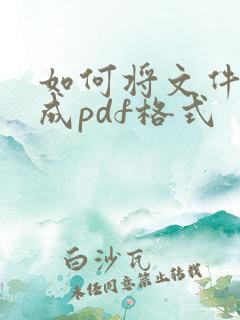 如何将文件
成pdf格式
白沙瓦
未经同意禁止转载